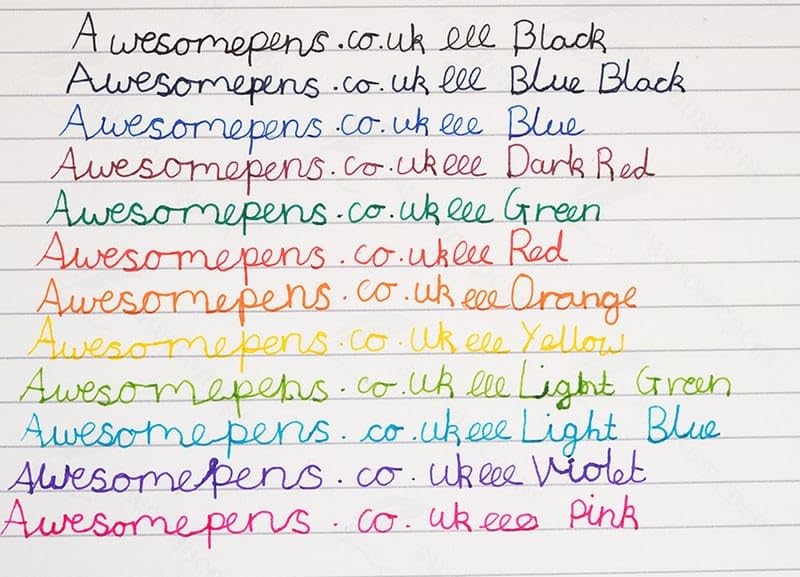 Awesomepens.co.uk eee Black
Awesomepens.co.uk eee Blue Black
Awesomepens.co.uk eee Blue
Awesomepens.co.uk eee Dark Red
Awesomepens.co.uk eee Green
Awesomepens.co.uk eee Red
Awesomepens.co.uk eee Orange
Awesomepens.co.uk eee Yellow
Awesomepens.co.uk eee Light Green
Awesomepens.co.uk eee Light Blue
Awesomepens.co.uk eee Violet
Awesomepens.co.uk eee Pink